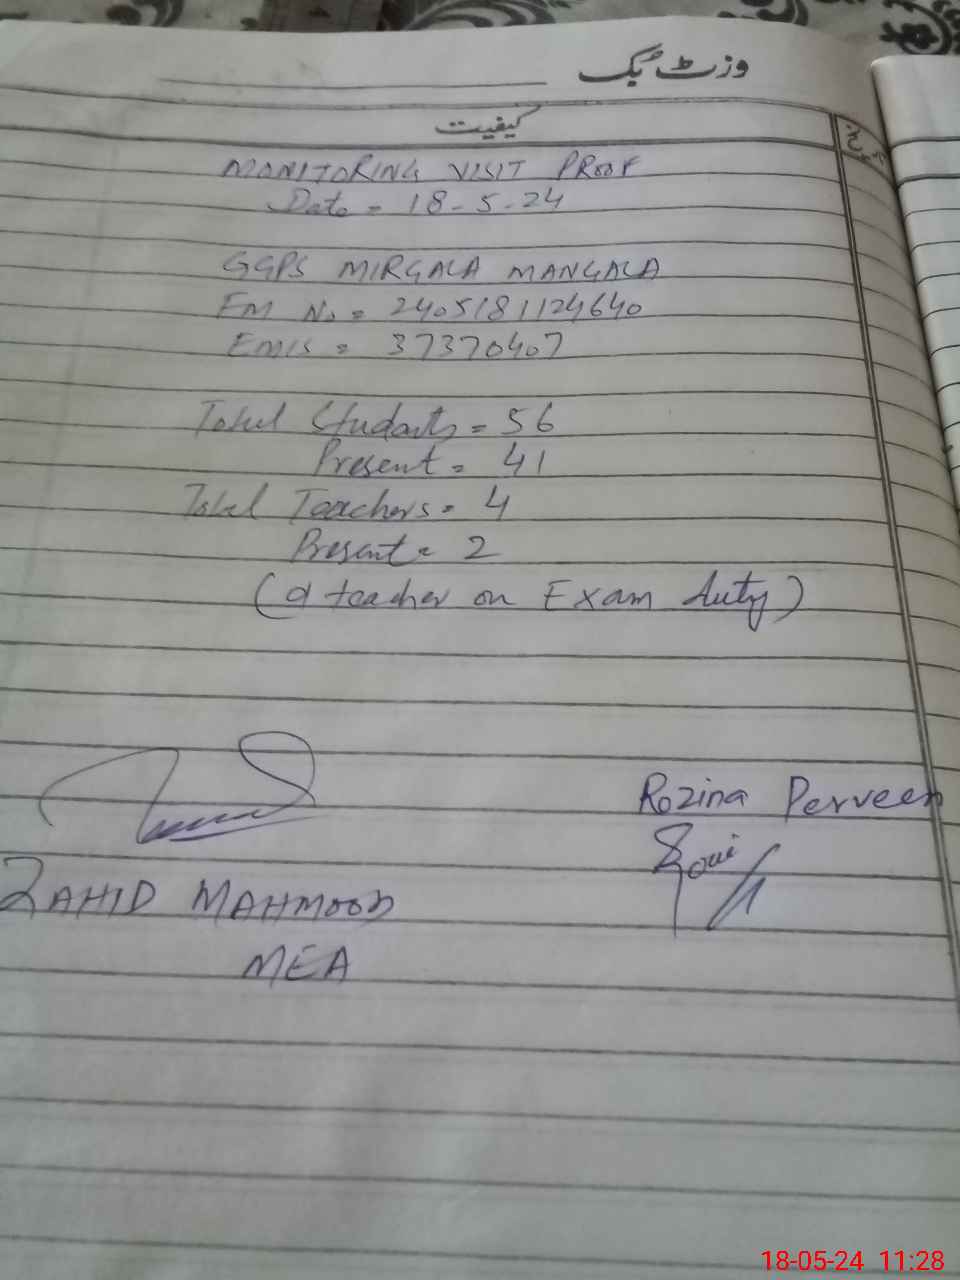 وزٹ بک
کیفیت
تاریخ
MONITORING VISIT PROOF
Date = 18-5-24
GGPS MIRGALA MANGALA
FM No = 2405181124640
EMIS = 37370407
Total Students = 56
Present = 41
Total Teachers = 4
Present = 2
( teacher on Exam duty)
Rozina Perveen
ZAHID MAHMOOD
MEA
18-05-24 11:28